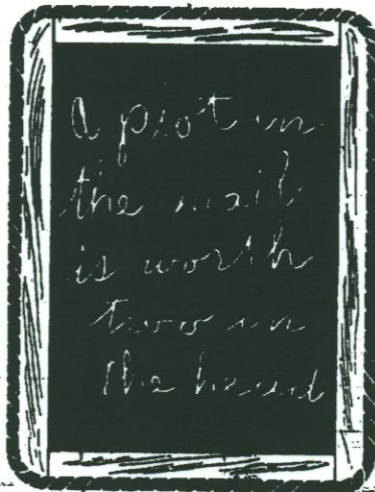 a plot in
the mail
is worth
two in
the head